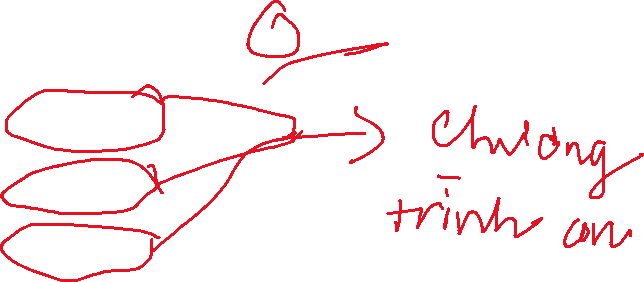 Chương
trình con